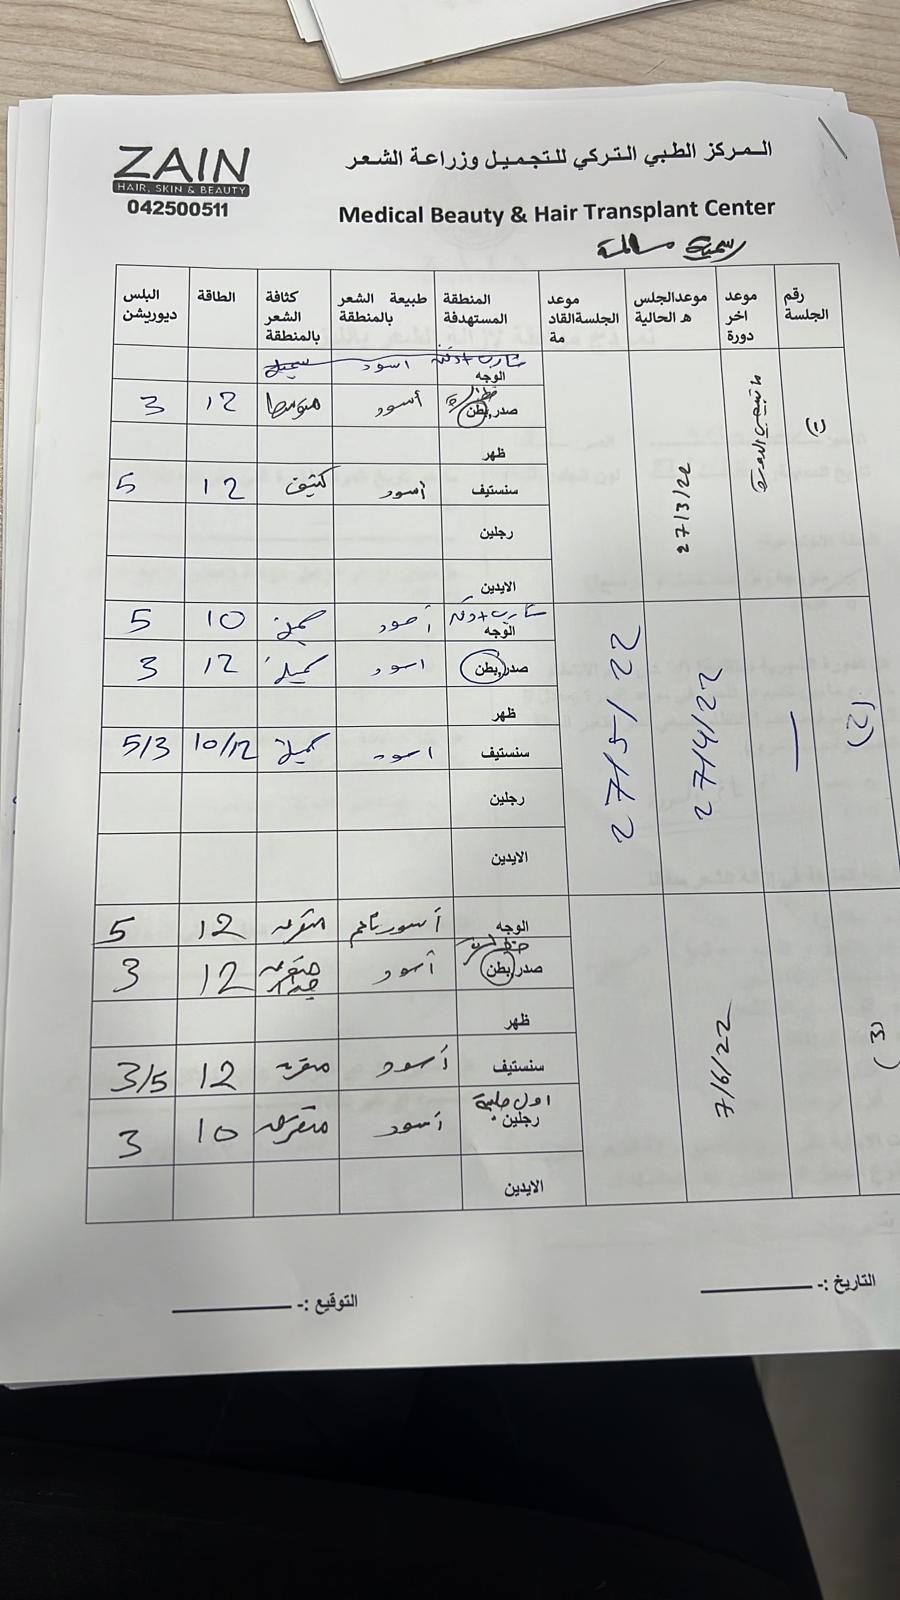 ZAIN
HAIR, SKIN & BEAUTY
042500511
المركز الطبي التركي للتجميل وزراعة الشعر
Medical Beauty & Hair Transplant Center
رقم الجلسة
موعد اخر دورة
موعدالجلسه الحالية
موعد الجلسةالقادمة
المنطقة المستهدفة
طبيعة الشعر بالمنطقة
كثافة الشعر بالمنطقة
الطاقة
البلس ديوريشن
(1)
27/3/22
الوجه اسود
صدر,بطن أسود متوسط 12 3
ظهر
سنستيف أسود كثيف 12 5
رجلين
الايدين
(2)
27/4/22
27/5/22
الوجه أسود 10 5
صدر,بطن اسود 12 3
ظهر
سنستيف اسود 10/12 5/3
رجلين
الايدين
(3)
7/6/22
الوجه أسود ناعم 12 5
صدر,بطن أسود 12 3
ظهر
سنستيف أسود 12 3/5
رجلين أسود 10 3
الايدين
التاريخ :-
التوقيع :-